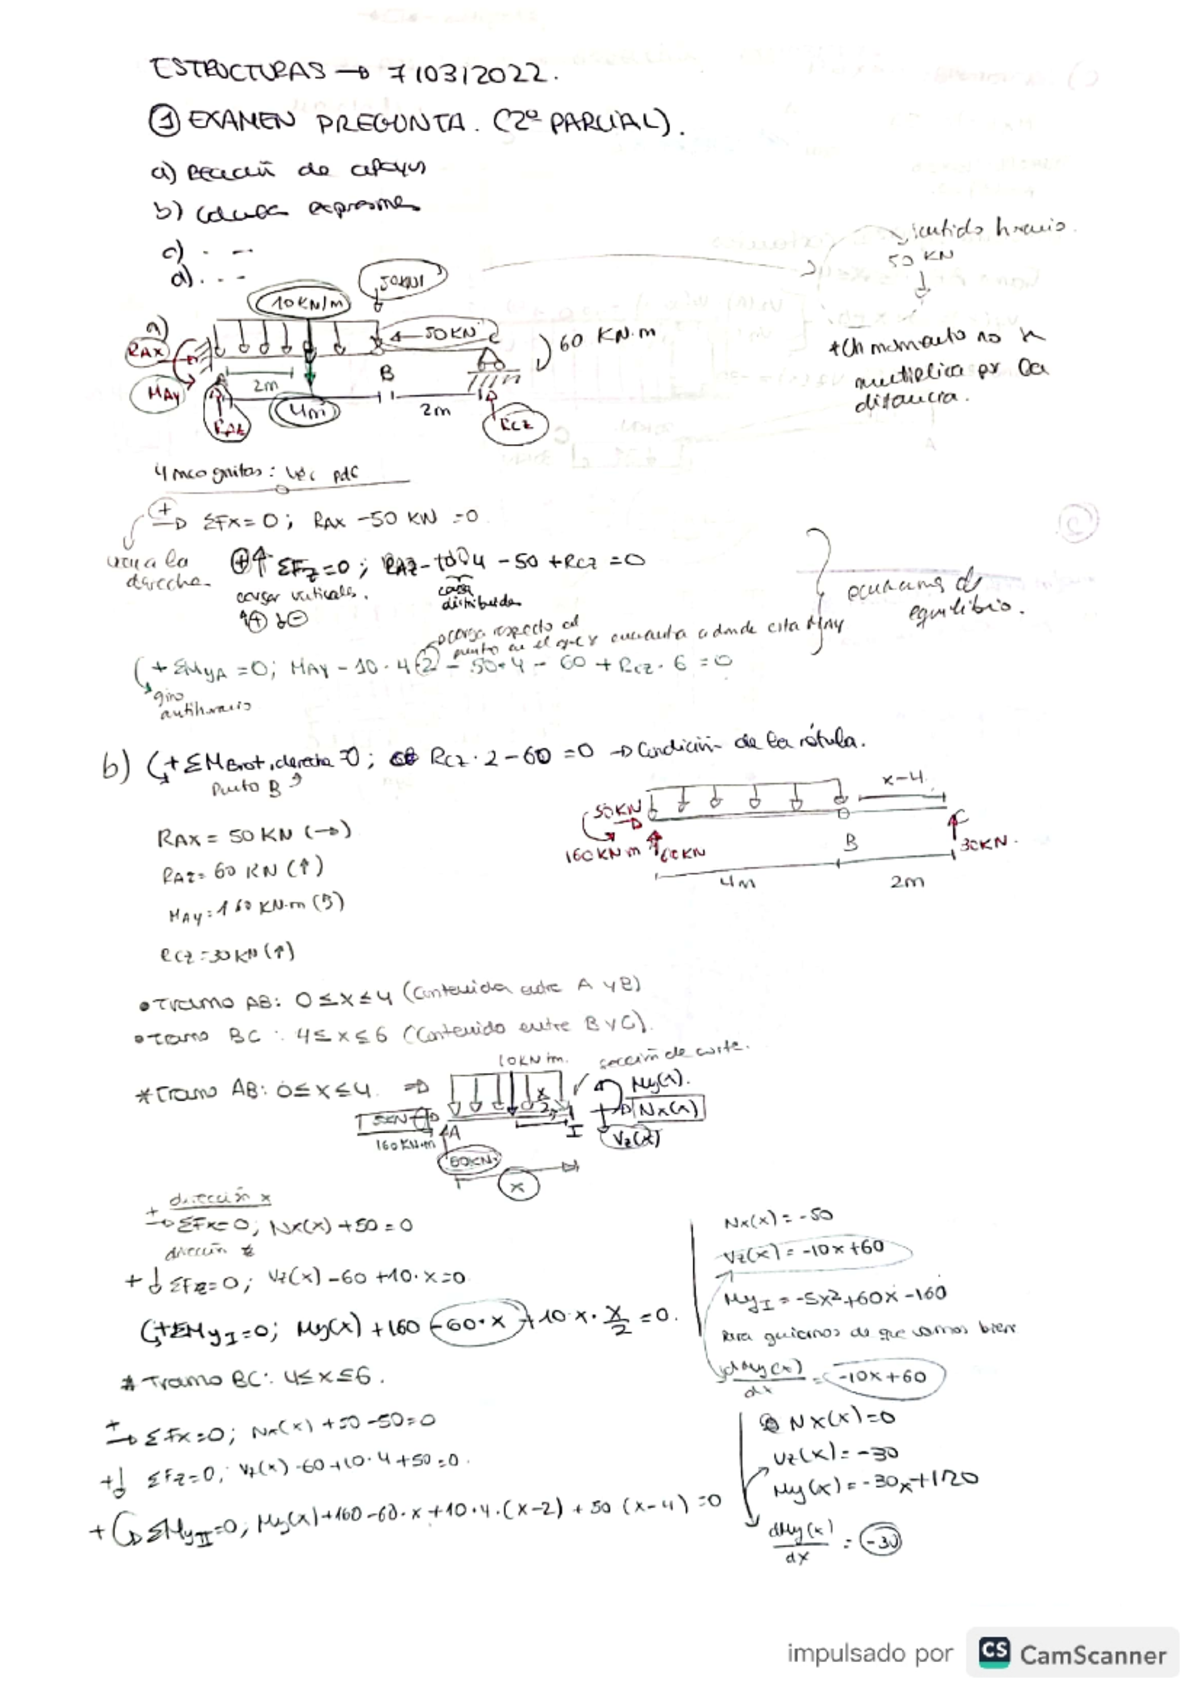 ESTRUCTURAS → 7/03/2022.
① EXAMEN PREGUNTA. (2º PARCIAL).
a) Reacción de apoyos
b) expresiones
c) . --
d) . . -
sentido horario.
50 KN
50KN
10KN/m
a)
RAX
50KN
60 KN·m
*Un momento no se
multiplica por la
distancia.
MAY
2m
B
4m
2m
RAZ
RCZ
4 incognitas: ver pdf
+→ ΣFx=0; RAX -50 KN =0
a la
derecha
⊕↑ ΣFz=0; RAZ-10·4 -50 +RCZ =0
cargas verticales.
carga
distribuida
↑⊕ ↓⊖
ecuaciones de
equilibrio.
carga respecto al
punto en el que se encuentra a donde esta May
(+ ΣMyA =0; MAY - 10·4·2 - 50·4 - 60 + RCZ·6 =0
giro
antihorario
b) (+ ΣMBrot,derecha=0; RCZ·2-60=0 → Condición de la rótula.
Punto B
x-4
50KN
160 KN·m
60KN
B
30KN.
4m
2m
RAX = 50 KN (→)
RAZ= 60 KN (↑)
MAY=160 KN·m
RCZ=30KN (↑)
• Tramo AB: 0≤x≤4 (Contenida entre A y B)
• Tramo BC: 4≤x≤6 (Contenido entre B y C).
10KN/m.
sección de corte.
* Tramo AB: 0≤x≤4. ⇒
My(x).
Nx(x)
Vz(x)
x/2
I
A
160KN·m
60KN
x
dirección x
+→ ΣFx=0; Nx(x)+50=0
dirección z
+↓ ΣFz=0; Vz(x)-60+10·x=0
(+ΣMyI=0; My(x)+160-60·x+10·x·x/2=0.
Nx(x)=-50
Vz(x)=-10x+60
MyI=-5x²+60x-160
Para guiarnos de que vamos bien
dMy(x)/dx = -10x+60
* Tramo BC: 4≤x≤6.
+→ ΣFx=0; Nx(x)+50-50=0
+↓ ΣFz=0; Vz(x)-60+10·4+50=0.
+ ΣMyII=0; My(x)+160-60·x+10·4·(x-2)+50(x-4)=0
Nx(x)=0
Vz(x)=-30
My(x)=-30x+120
dMy(x)/dx = -30
impulsado por CS CamScanner